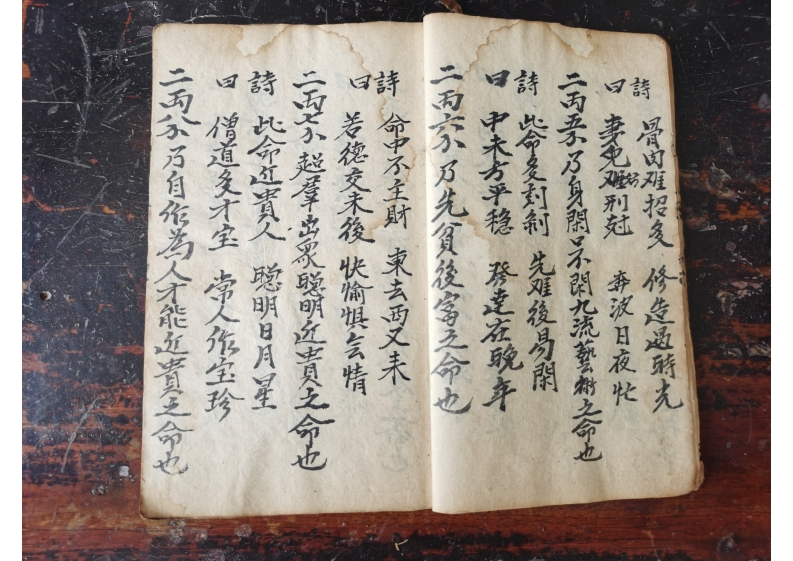 詩曰 骨肉难招多 修造過時光
妻兒难免刑尅 奔波日夜忙
二両五分乃身閑口不閑九流藝術之命也
詩曰 此命多刻剝 先难後易閑
中未方平稳 発達在晚年
二両六分乃先貧後富之命也
詩曰 命中不主財 東去西又来
若德交未後 快愉惧会情
二両七分超羣出眾聪明近貴之命也
詩曰 此命近貴人 聪明日月星
僧道多才宝 常人作宝珍
二両八分乃自作為人才能近貴之命也